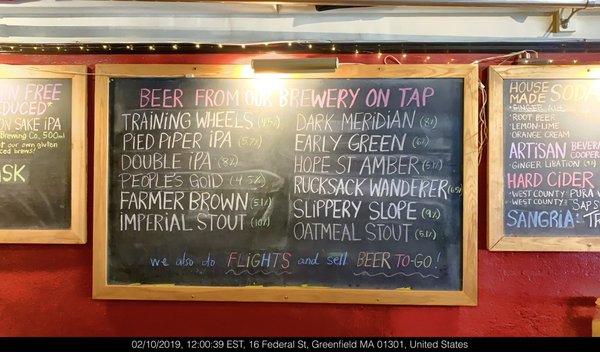 EN FREE
DUCED*
ON SAKE IPA
Brewing Co, 500ml
our own gluten
ced brews!
ASK
BEER FROM OUR BREWERY ON TAP
TRAINING WHEELS (4.5%)
PIED PIPER IPA (5.7%)
DOUBLE IPA (8%)
PEOPLE'S GOLD (4.5%)
FARMER BROWN (5.1%)
IMPERIAL STOUT (10%)
DARK MERIDIAN (8%)
EARLY GREEN (6%)
HOPE ST AMBER (6.1%)
RUCKSACK WANDERER (6.5%)
SLIPPERY SLOPE (9%)
OATMEAL STOUT (5.1%)
we also do FLIGHTS and sell BEER TO-GO!
HOUSE
MADE SODA
-GINGER ALE
-ROOT BEER
-LEMON-LIME
-ORANGE CREAM
ARTISAN BEVERAG
COOPER
-GINGER LIBATION
HARD CIDER
-WEST COUNTY: PURA
-WEST COUNTY:
SANGRIA: TR
02/10/2019, 12:00:39 EST, 16 Federal St, Greenfield MA 01301, United States